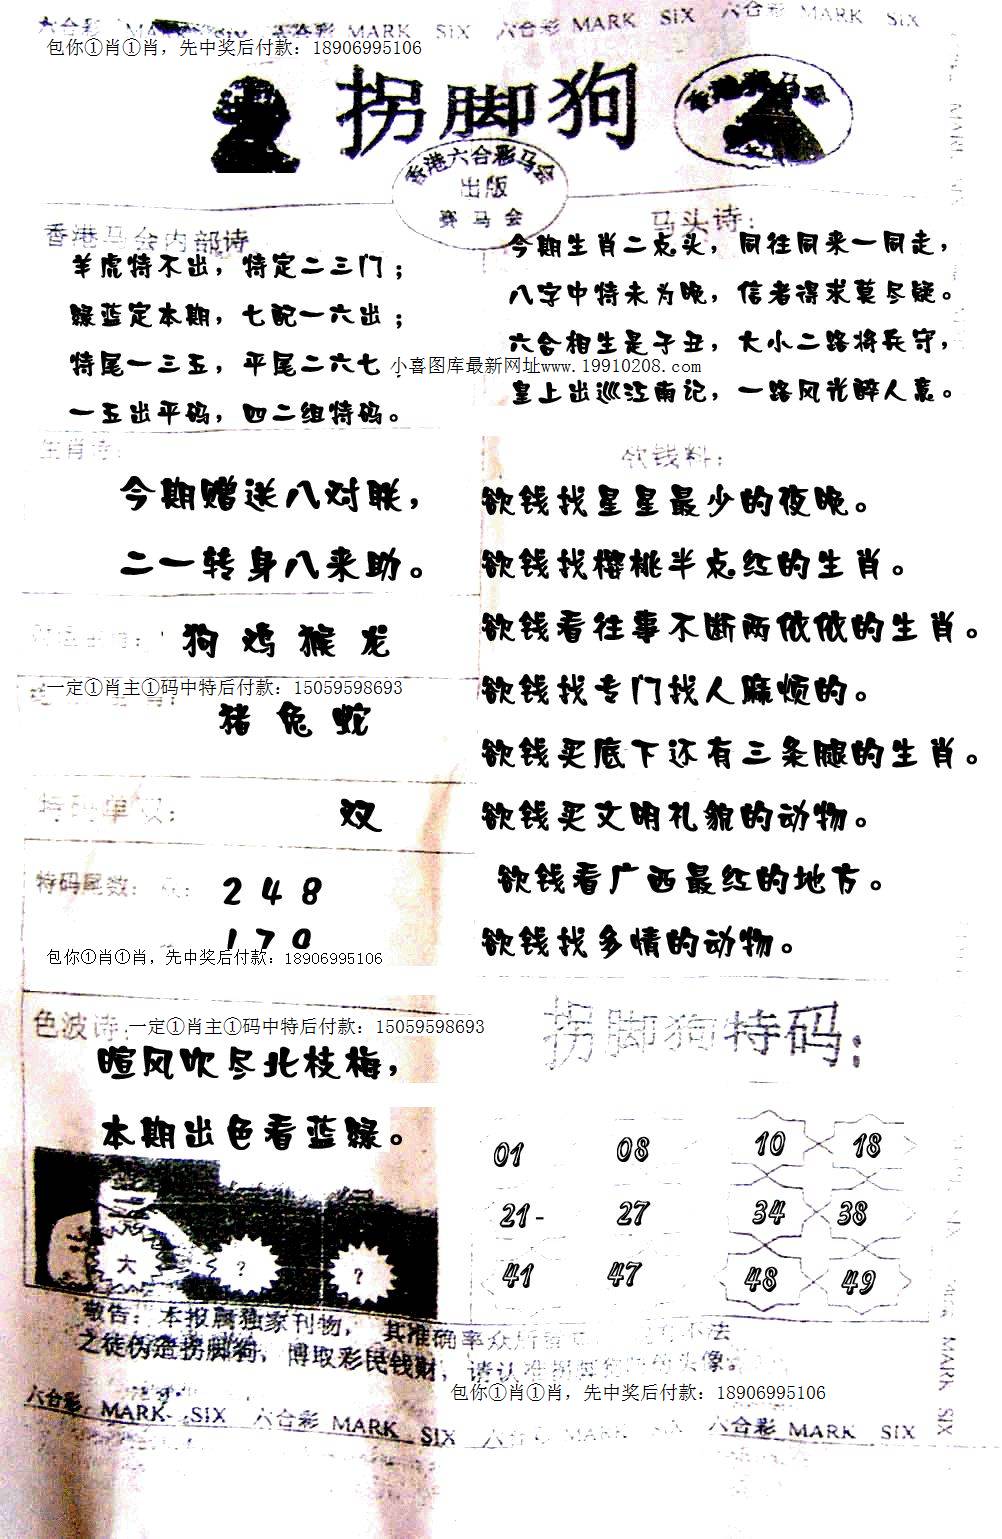 六合彩 MARK SIX 六合彩 MARK SIX 六合彩 MARK SIX
包你①肖①肖，先中奖后付款：18906995106
拐脚狗
香港六合彩马会
出版
赛马会
香港马会内部诗
羊虎特不出，特定二三门；
绿蓝定本期，七配一六出；
特尾一三五，平尾二六七
一五出平码，四二组特码。
马头诗：
今期生肖二点头，同往同来一同走，
八字中特未为晚，信者得求莫尽疑。
六合相生是子丑，大小二路将兵守，
小喜图库最新网址www.19910208.com
皇上出巡江南记，一路风光醉人意。
生肖诗：
今期赠送八对联，
二一转身八来助。
狗 鸡 猴 龙
一定①肖主①码中特后付款：15059598693
猪 兔 蛇
特码单双：
双
特码尾数：
2 4 8
1 7 9
包你①肖①肖，先中奖后付款：18906995106
欲钱料：
欲钱找星星最少的夜晚。
欲钱找樱桃半点红的生肖。
欲钱看往事不断两依依的生肖。
欲钱找专门找人麻烦的。
欲钱买底下还有三条腿的生肖。
欲钱买文明礼貌的动物。
欲钱看广西最红的地方。
欲钱找多情的动物。
色波诗：
一定①肖主①码中特后付款：15059598693
暄风吹尽北枝梅，
本期出色看蓝绿。
大 ? ?
拐脚狗特码：
01 08 10 18
21- 27 34 38
41 47 48 49
敬告：本报属独家刊物，其准确率众所
不法
之徒伪造拐脚狗，博取彩民钱财，请认准拐脚狗
头像。
包你①肖①肖，先中奖后付款：18906995106
六合彩 MARK SIX 六合彩 MARK SIX 六合彩 MARK SIX 六合彩 MARK SIX
MARK SIX